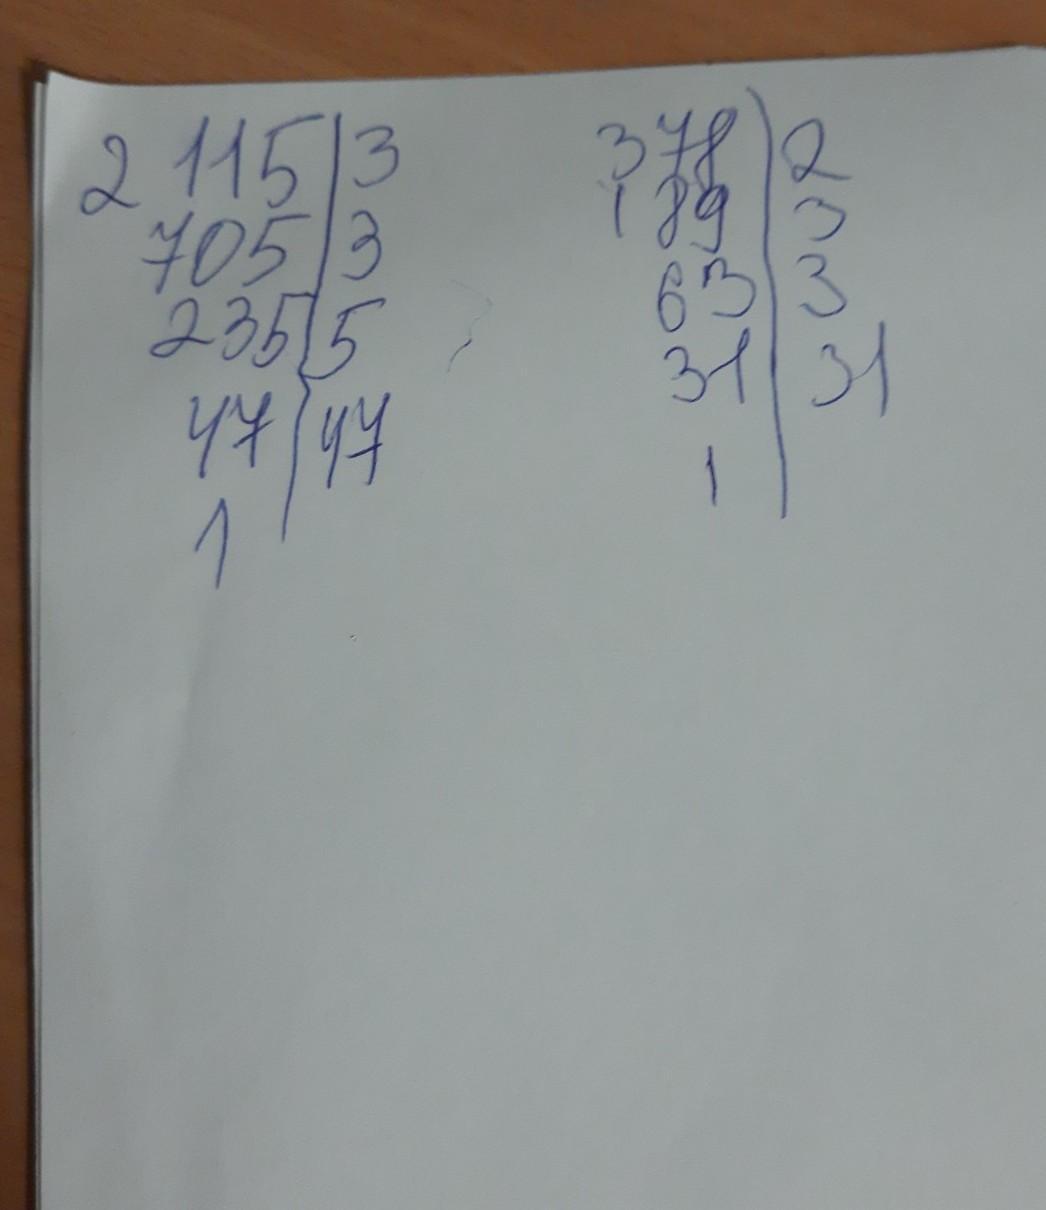 2 115 | 3
705 | 3
235 | 5
47 | 47
1 |
378 | 2
189 | 3
63 | 3
31 | 31
1 |